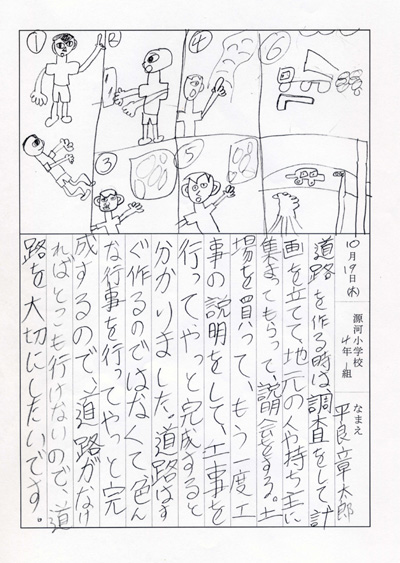 ①
②
④
⑥
③
⑤
10月19日(木)
源河小学校
4年1組
なまえ
平良章太郎
道路を作る時は、調査をして計
画を立てて、地元の人や持ち主に
集まってもらって、説明会をする。土
場を買って、もう一度工
事の説明をして、工事を
行ってやっと完成すると
分かりました。道路はす
ぐ作るのではなくて色ん
な行事を行ってやっと完
成するので、道路がなけ
ればどこも行けないので、道
路を大切にしたいです。